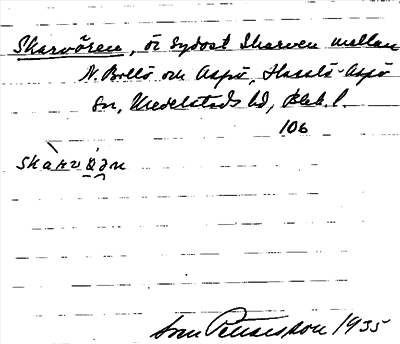 Skarvören, ö sydost Skarven mellan
N. Bollö och Aspö, Hasslö-Aspö
sn, Medelstads hd, Blek. l.
106
skàrv ö́ən
Sven Pettersson 1935